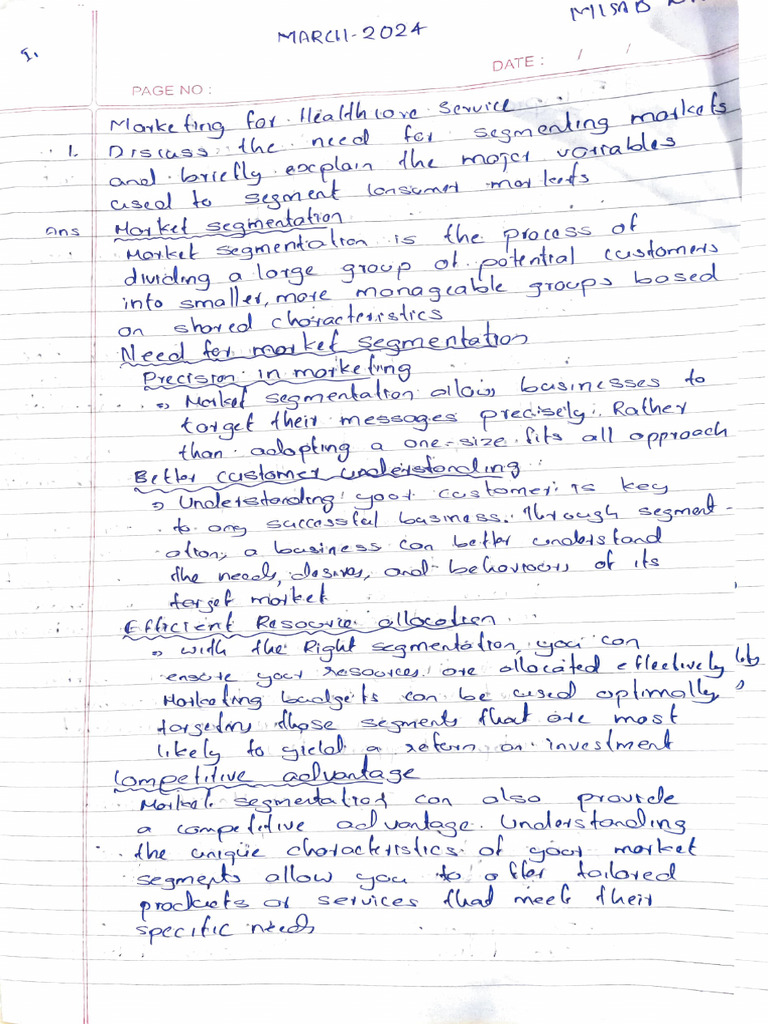 MISAB
MARCH-2024
1.
DATE : / /
PAGE NO :
Marketing for Healthcare Service
1. Discuss the need for segmenting markets
and briefly explain the major variables
used to segment consumer markets
ans Market segmentation
Market segmentation is the process of
dividing a large group of potential customers
into smaller, more manageable groups based
on shared characteristics
Need for market segmentation
Precision in marketing
Market segmentation allows businesses to
target their messages precisely. Rather
than adopting a one-size fits all approach
Better customer understanding
Understanding your customer is key
to any successful business. Through segment-
ation, a business can better understand
the needs, desires, and behaviours of its
target market
Efficient Resource allocation
with the Right segmentation, you can
ensure your resources are allocated effectively
Marketing budgets can be used optimally,
targeting those segments that are most
likely to yield a return on investment
Competitive advantage
Market segmentation can also provide
a competitive advantage. Understanding
the unique characteristics of your market
segments allow you to offer tailored
products or services that meets their
specific needs